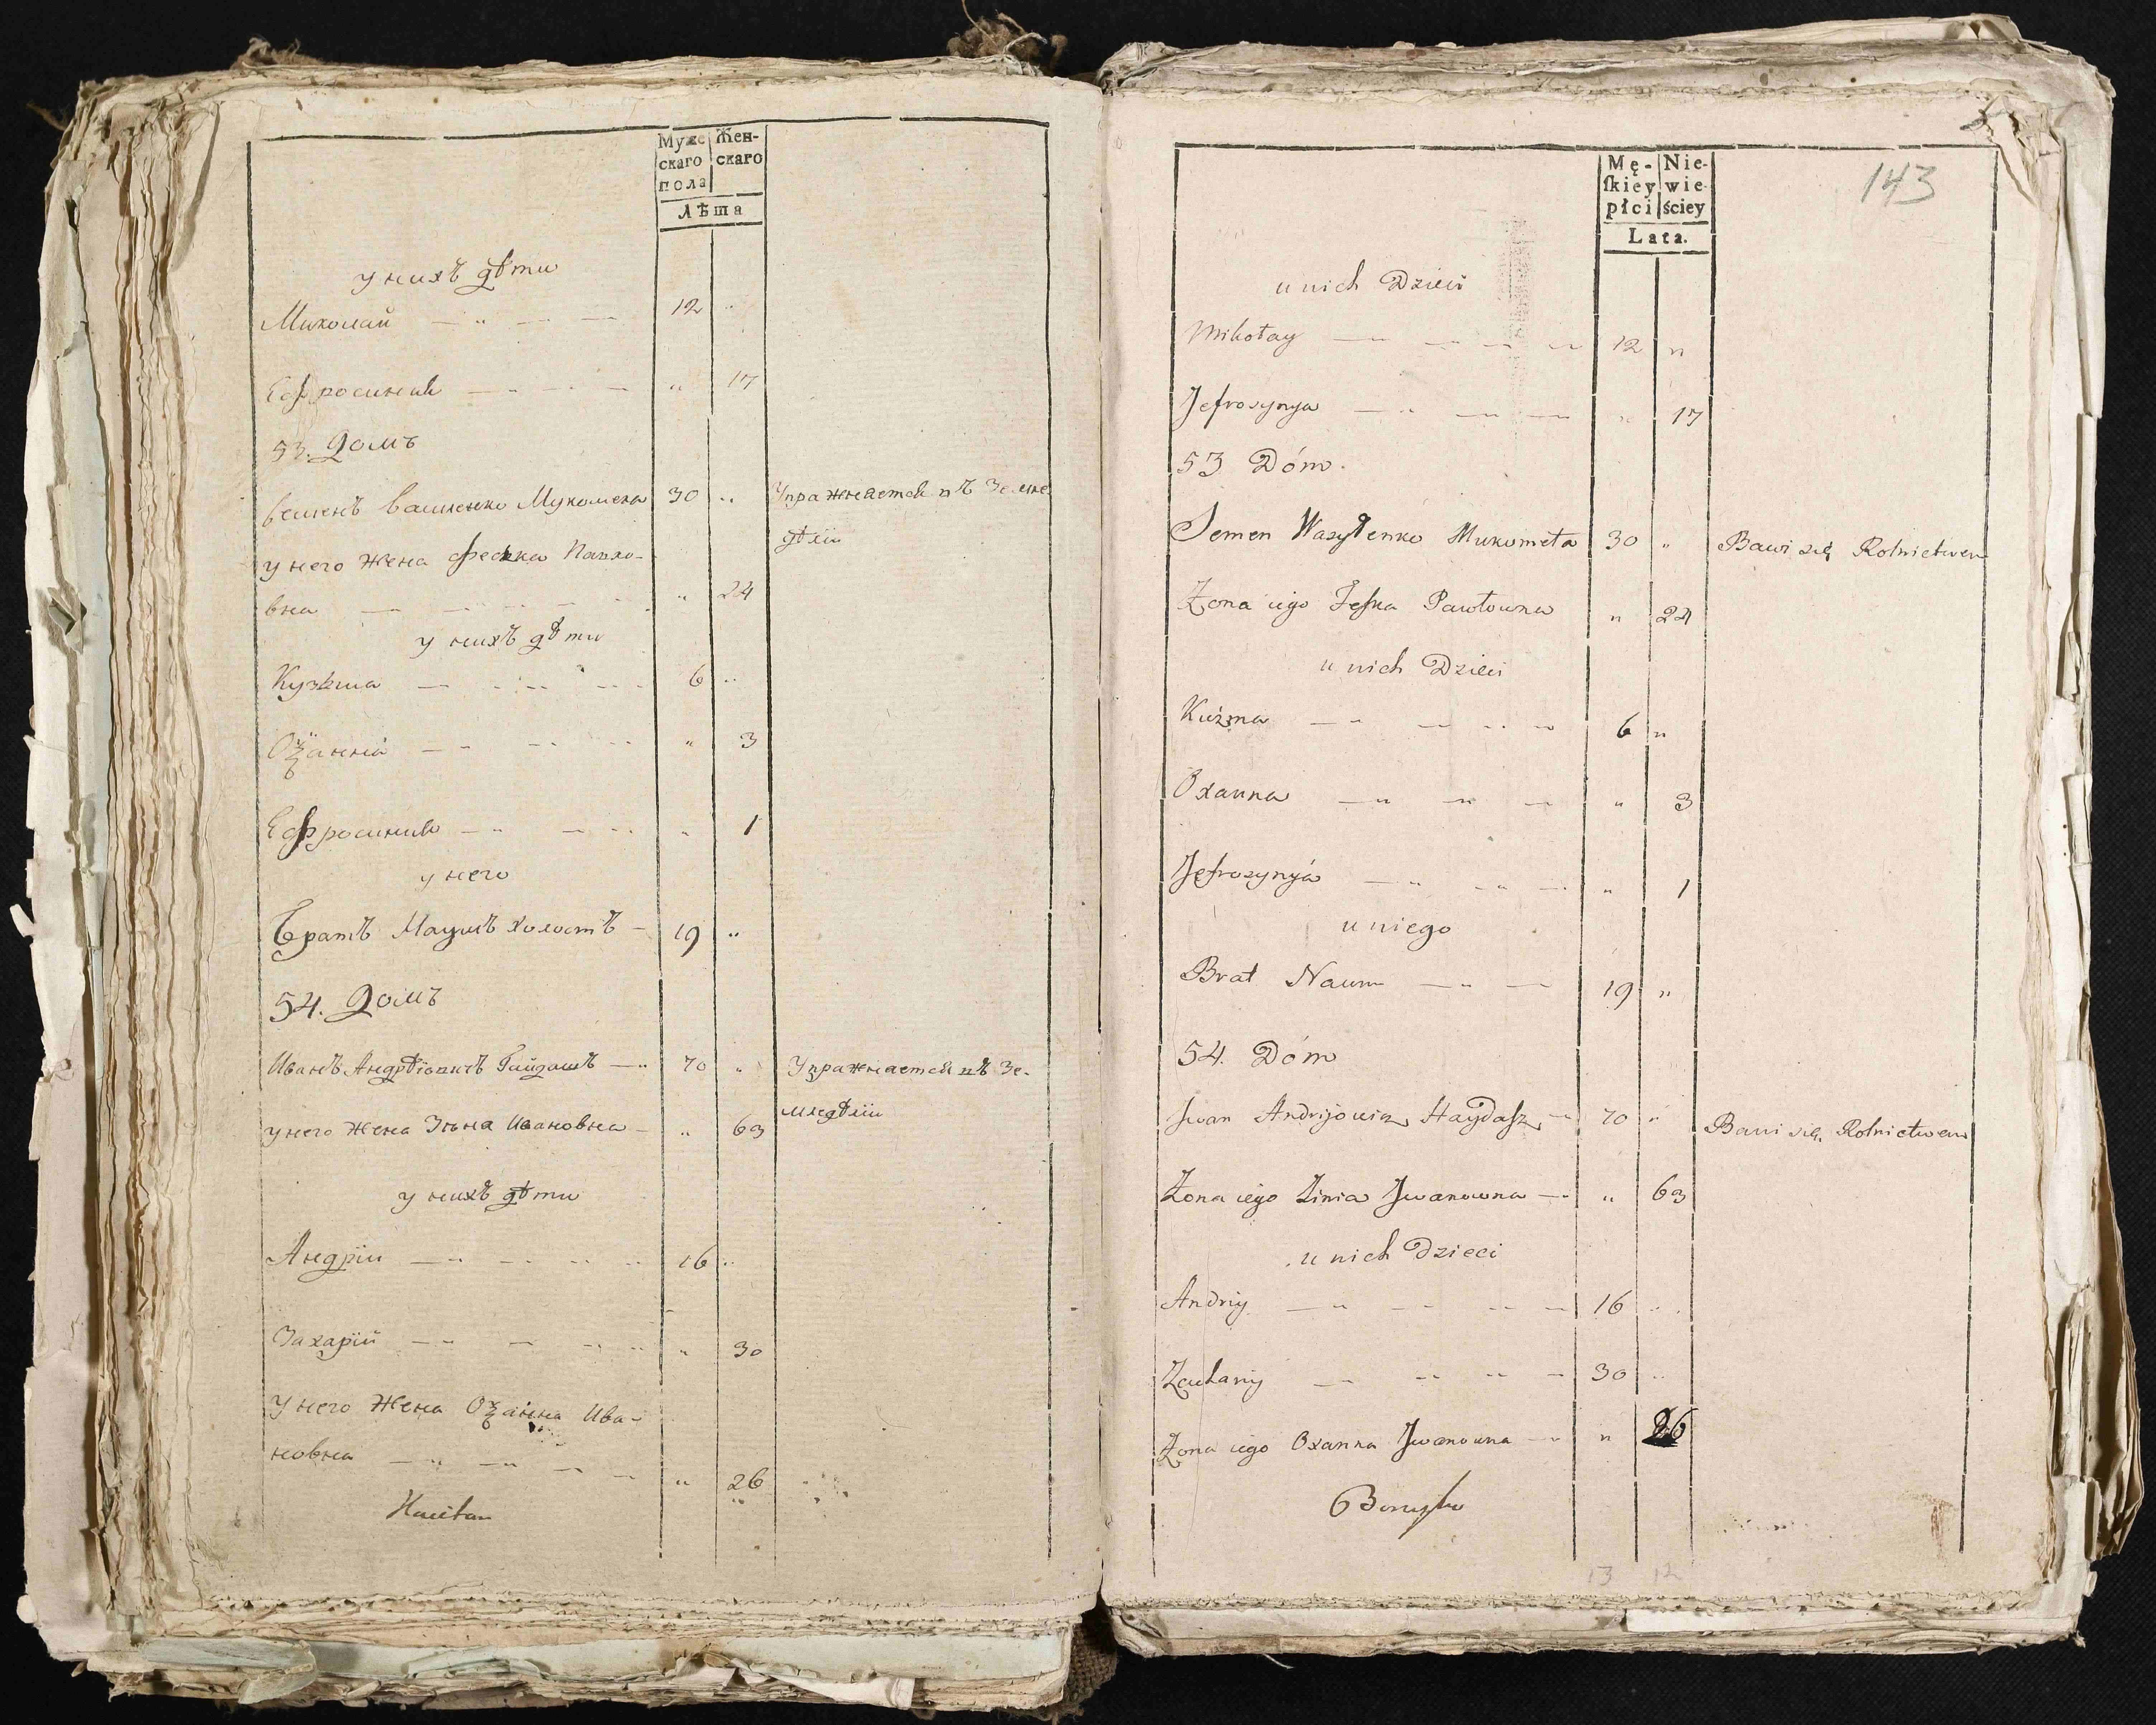 Муже Жен-
скаго скаго
пола
Лѣта
у нихъ дѣти
Миколай 12 "
Ефросиния " 17
53. Домъ
Семенъ Василенко Мукомела 30 " Упражняется въ Земле
дѣліи
у него жена Феска Павло-
вна " 24
у нихъ дѣти
Кузьма 6 "
Оѯанна " 3
Ефросиния " 1
у него
Братъ Наумъ холостъ 19 "
54. Домъ
Иванъ Андрѣіовичъ Гайдашъ 70 " Упражняется въ Зе-
мледѣліи
у него жена Зѣня Ивановна " 63
у нихъ дѣти
Андрій 16 "
Захарій " 30
У него жена Оѯанна Ива-
новна " 26
143
Mę- Nie-
ſkiey wie-
płci ściey
Lata.
u nich Dzieci
Mikołay 12 "
Jefrosynya " 17
53 Dóm.
Semen Wasylenko Mukomeła 30 " Bawi się Rolnictwem
Żona iego Feska Pawłowna " 24
u nich Dzieci
Kuźma 6 "
Oxanna " 3
Jefrosynya " 1
u niego
Brat Naum 19 "
54. Dóm
Jwan Andrijowicz Haydasz 70 " Bawi się Rolnictwem
Żona iego Zinia Jwanowna " 63
u nich Dzieci
Andriy 16 "
Zachariy 30 "
Żona iego Oxanna Jwanowna " 26
13 12